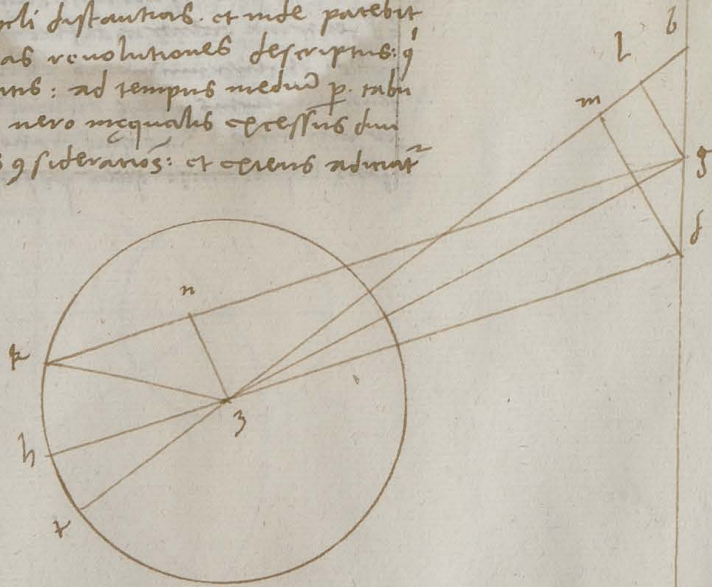 celi distantias. et inde patebit
as revolutiones descriptus: q
ad tempus mediu p. tabu
uero inequalis excessus
sideratios: et exiens adiciat
b
l
m
g
n
k
z
h
t